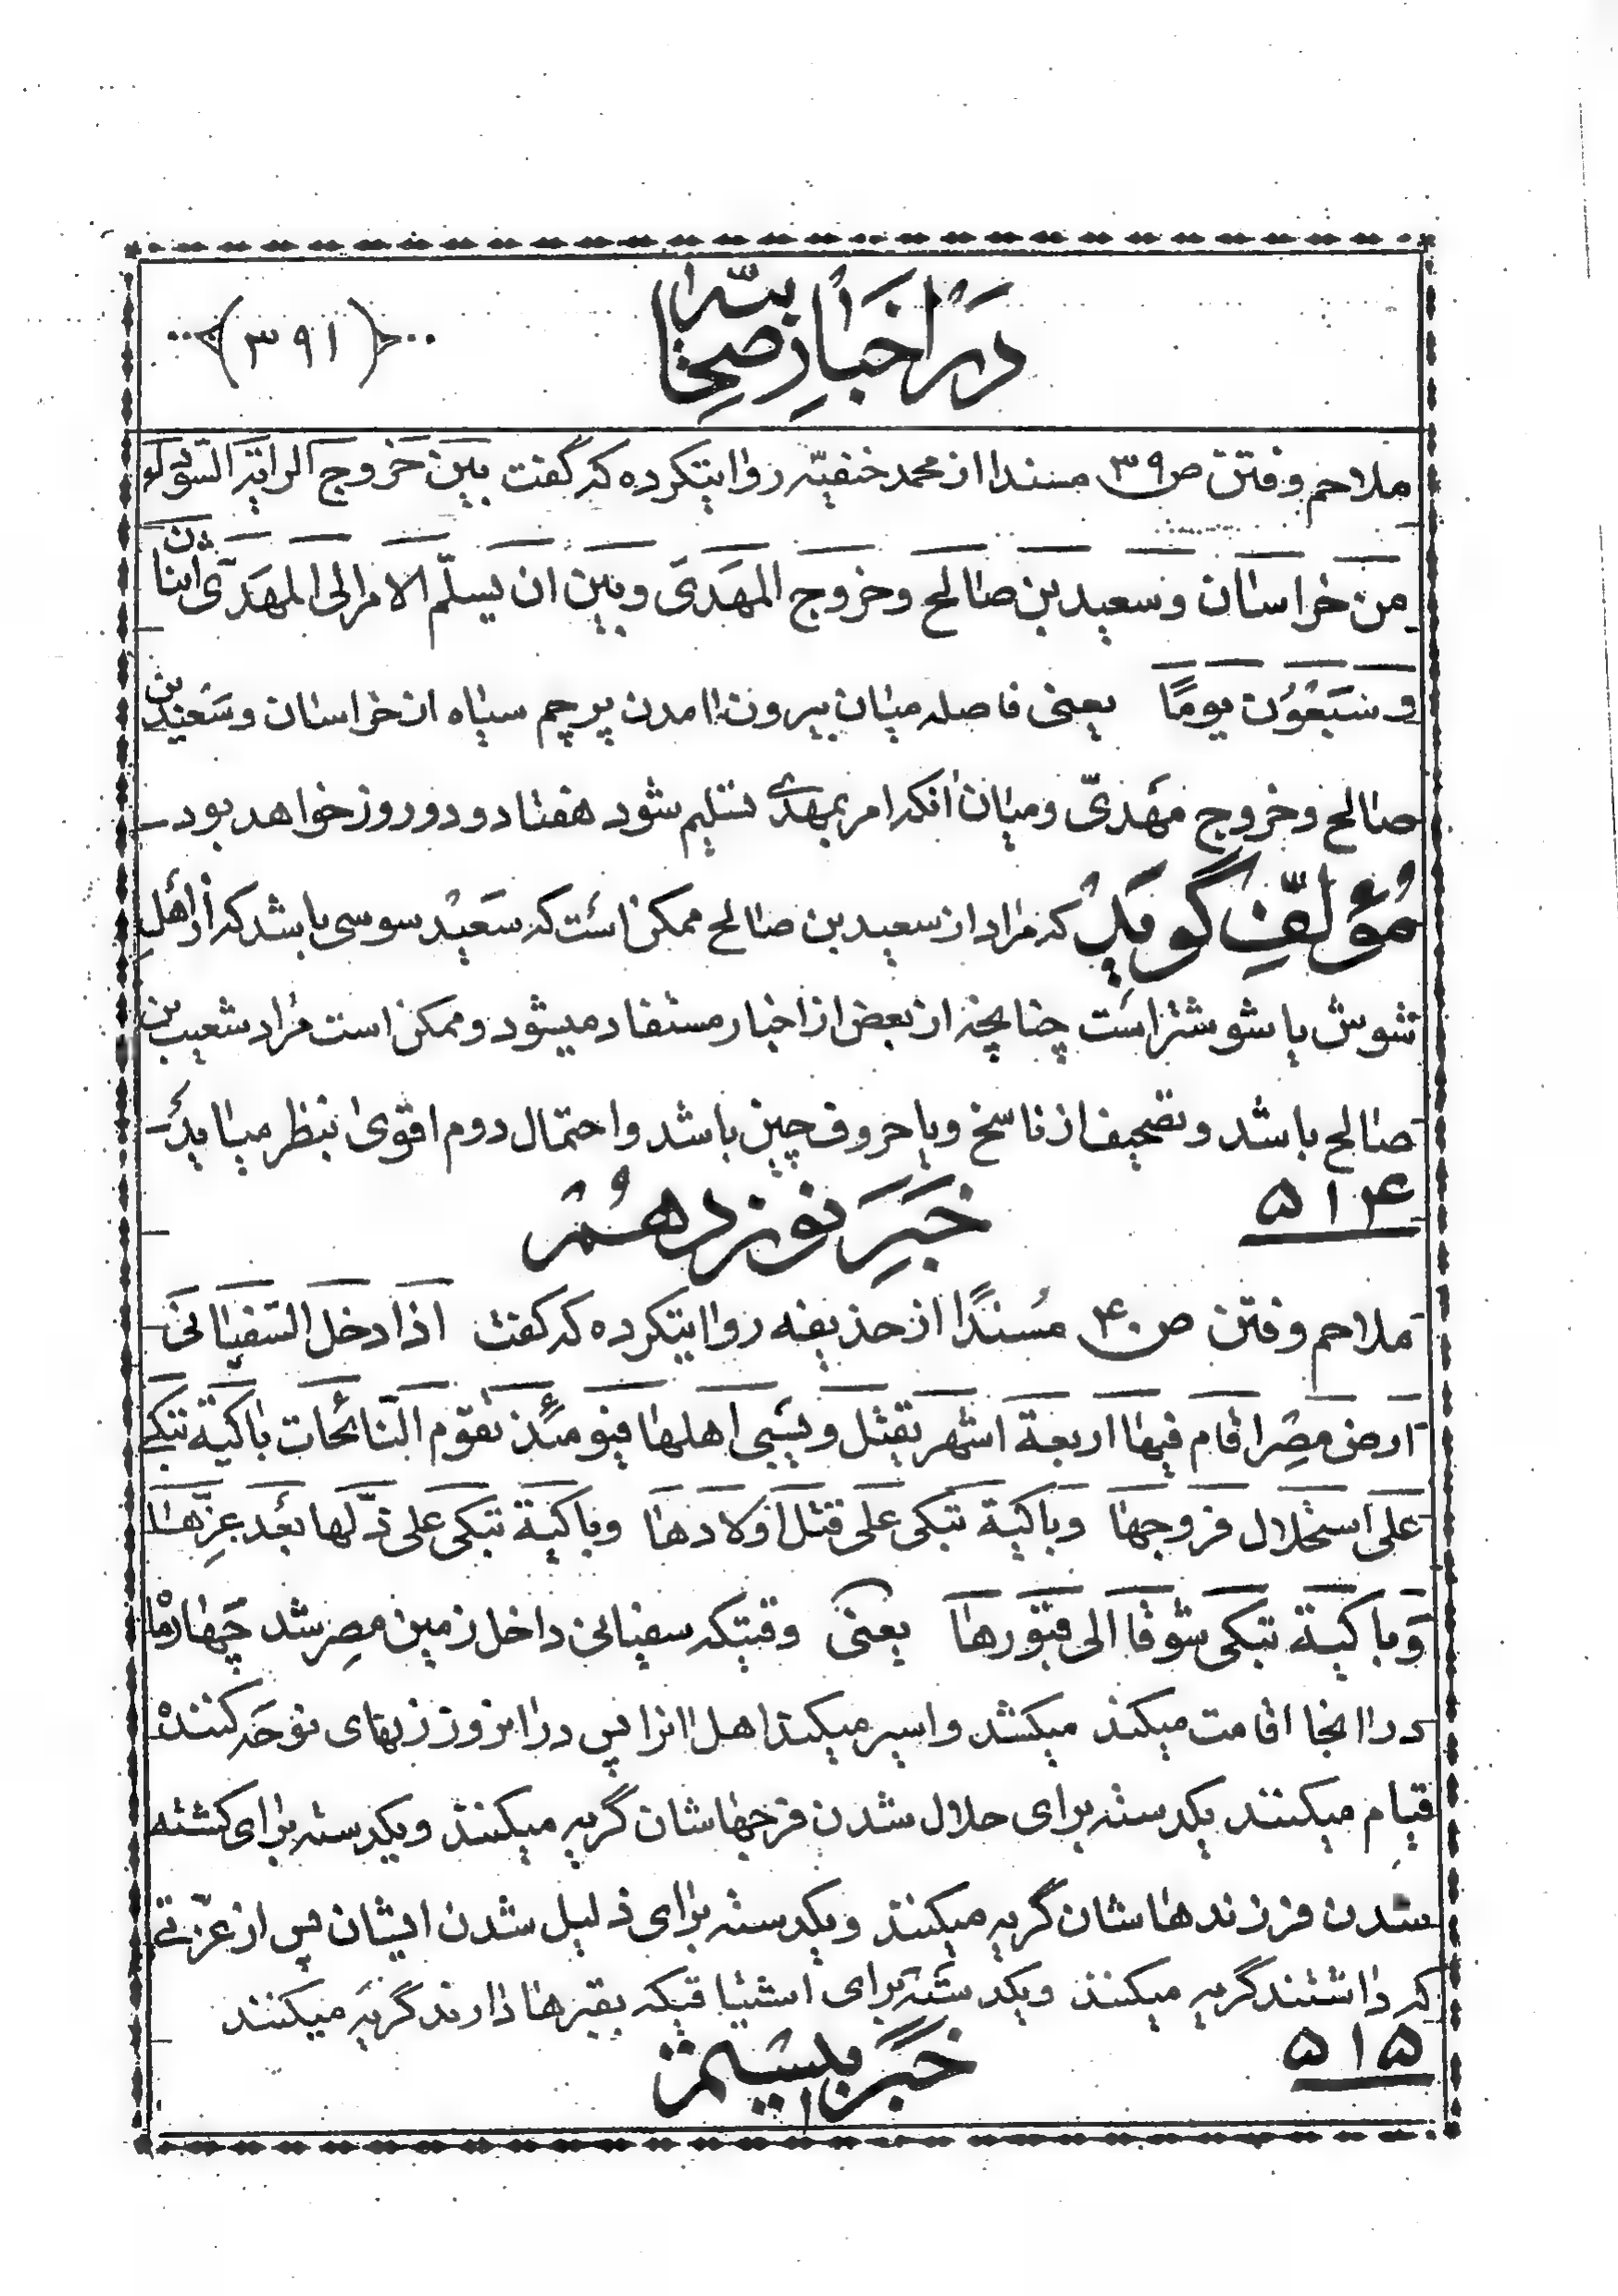 در اخبار صحابه
(۳۹۱)
ملاحم و فتن ص۳۹ مسندا از محمد حنفیّه روایتکرده که گفت بین خروج الرایة السّوداء
من خراسان و سعید بن صالح و خروج المهدی و بین ان یسلّم الامر الی المهدی اثنان
و سبعون یومًا یعنی فاصله میان بیرون امدن پرچم سیاه از خراسان و سعید بن
صالح و خروج مهدیّ و میان انکه امر بمهدی تسلیم شود هفتاد و دو روز خواهد بود
مؤلّف گوید که مراد از سعید بن صالح ممکن است که سعید سوسی باشد که از اهل
شوش یا شوشتر است چنانچه از بعض از اخبار مستفاد میشود و ممکن است مراد شعیب بن
صالح باشد و تصحیف از ناسخ و یا حروف چین باشد و احتمال دوم اقوی بنظر میاید
۵۱۴
خبر نوزدهم
ملاحم و فتن ص۴۰ مسندًا از حذیفه روایتکرده که گفت اذا دخل السّفیانی
ارض مصر اقام فیها اربعة اشهر یقتل و یسبی اهلها فیومئذ تقوم النّائحات باکیة تبکی
علی استحلال فروجها و باکیة تبکی علی قتل اولادها و باکیة تبکی علی ذلّها بعد عزّها
و باکیة تبکی شوقا الی قبورها یعنی وقتیکه سفیانی داخل زمین مصر شد چهار ماه
در انجا اقامت میکند میکشد و اسیر میکند اهل انرا پس در انروز زنهای نوحه کننده
قیام میکنند یکدسته برای حلال شدن فرجهاشان گریه میکنند و یکدسته برای کشته
شدن فرزندهاشان گریه میکنند و یکدسته برای ذلیل شدن ایشان پس از عزّتی
که داشتند گریه میکنند و یکدسته برای اشتیاقیکه بقبرها دارند گریه میکنند
۵۱۵
خبر بیستم